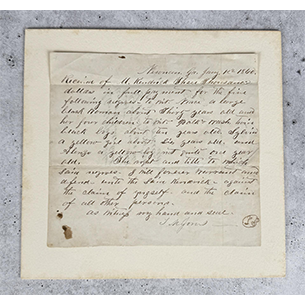 Newnan, Ga. Jany 10th 1860.
of A. Kendrick Three Thousand
dollars in full payment for the five
following negroes to wit a large
black Woman about Thirty years old and
her four children to wit
black boys about ten years old,
a yellow girl about Six years old and
a yellow boy not quite one year
old. The right and title to which
said negroes I will forever Warrant and
defend unto the Said Kendrick against
the claims of myself and the claims
of all other persons.
as witness my hand and seal